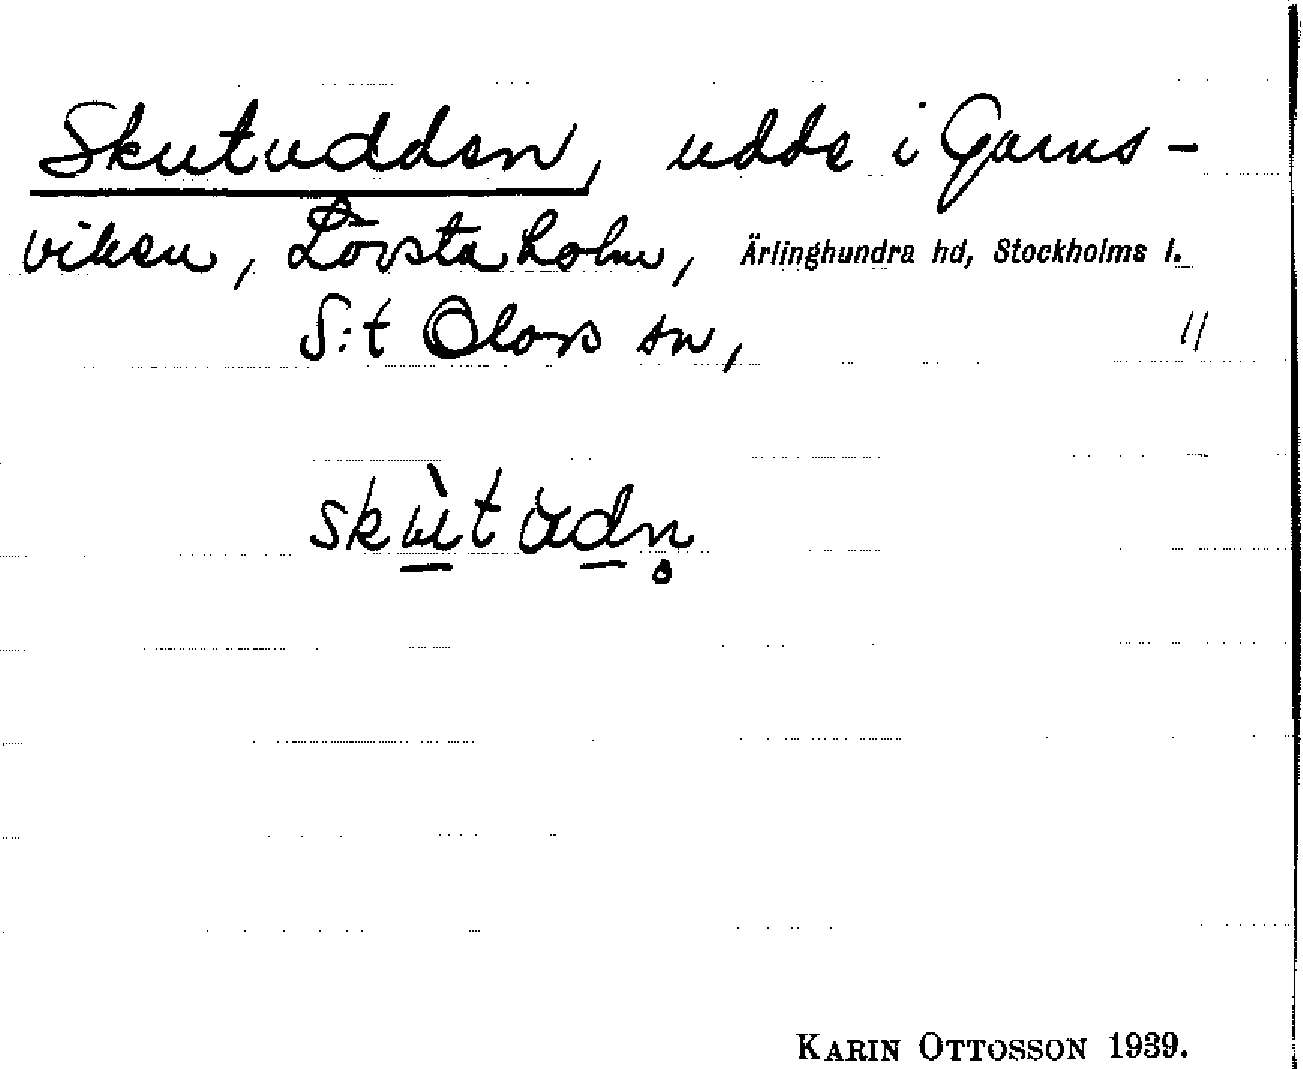 Skutudden, udde i Garns-
viken, Lövstaholm, Ärlinghundra hd, Stockholms l.
S:t Olovs sn, 11
skùtudn̥
KARIN OTTOSSON 1939.